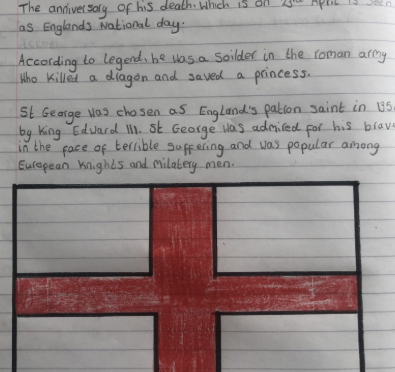 The anniversary of his death. Which is on 23rd April is seen
as Englands National day.
According to legend, he was a Soilder in the roman army
Who Killed a dragon and saved a princess.
St George was chosen as England's patron saint in
by King Edward III. St George was admired for his
in the face of terrible Suffering and was popular among
European Knights and Milatery men.